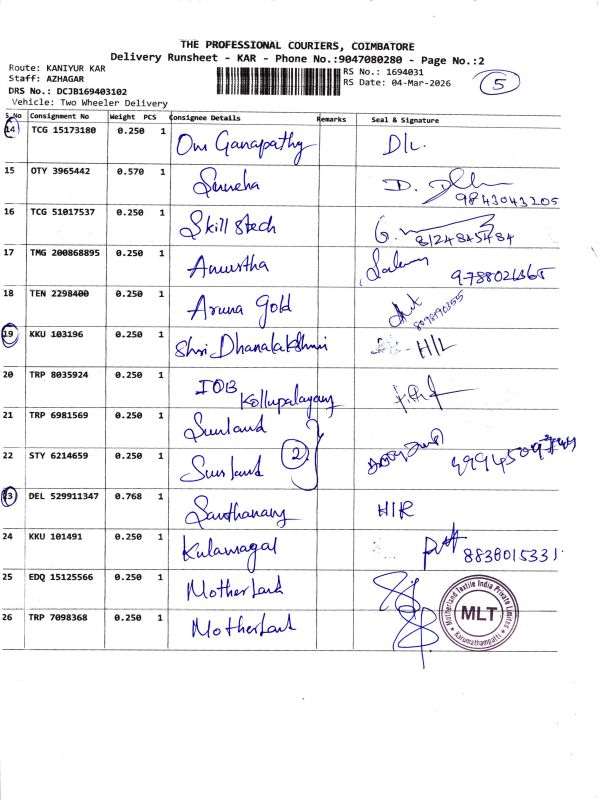 THE PROFESSIONAL COURIERS, COIMBATORE
Delivery Runsheet - KAR - Phone No.:9047080280 - Page No.:2
Route: KANIYUR KAR
RS No.: 1694031
5
Staff: AZHAGAR
RS Date: 04-Mar-2026
DRS No.: DCJB169403102
Vehicle: Two Wheeler Delivery
S.No Consignment No Weight PCS Consignee Details Remarks Seal & Signature
14 TCG 15173180 0.250 1 Om Ganapathy D/L.
15 OTY 3965442 0.570 1 Sumeha D.
9843043205
16 TCG 51017537 0.250 1 Skillstech G.
8124845484
17 TMG 200868895 0.250 1 Amurtha 9788021365
18 TEN 2298400 0.250 1 Aruna gold
8098190355
19 KKU 103196 0.250 1 Shri Dhanalakshmi H/L
20 TRP 8035924 0.250 1 IOB
Kollupalayam
21 TRP 6981569 0.250 1 Sunland
22 STY 6214659 0.250 1 Sunland 2
23 DEL 529911347 0.768 1 Santhanam H/R
24 KKU 101491 0.250 1 Kulamagal 8838015331
25 EDQ 15125566 0.250 1 Motherland
26 TRP 7098368 0.250 1 Motherland
Motherland Textile India Private Limited
MLT
Karumathampatti